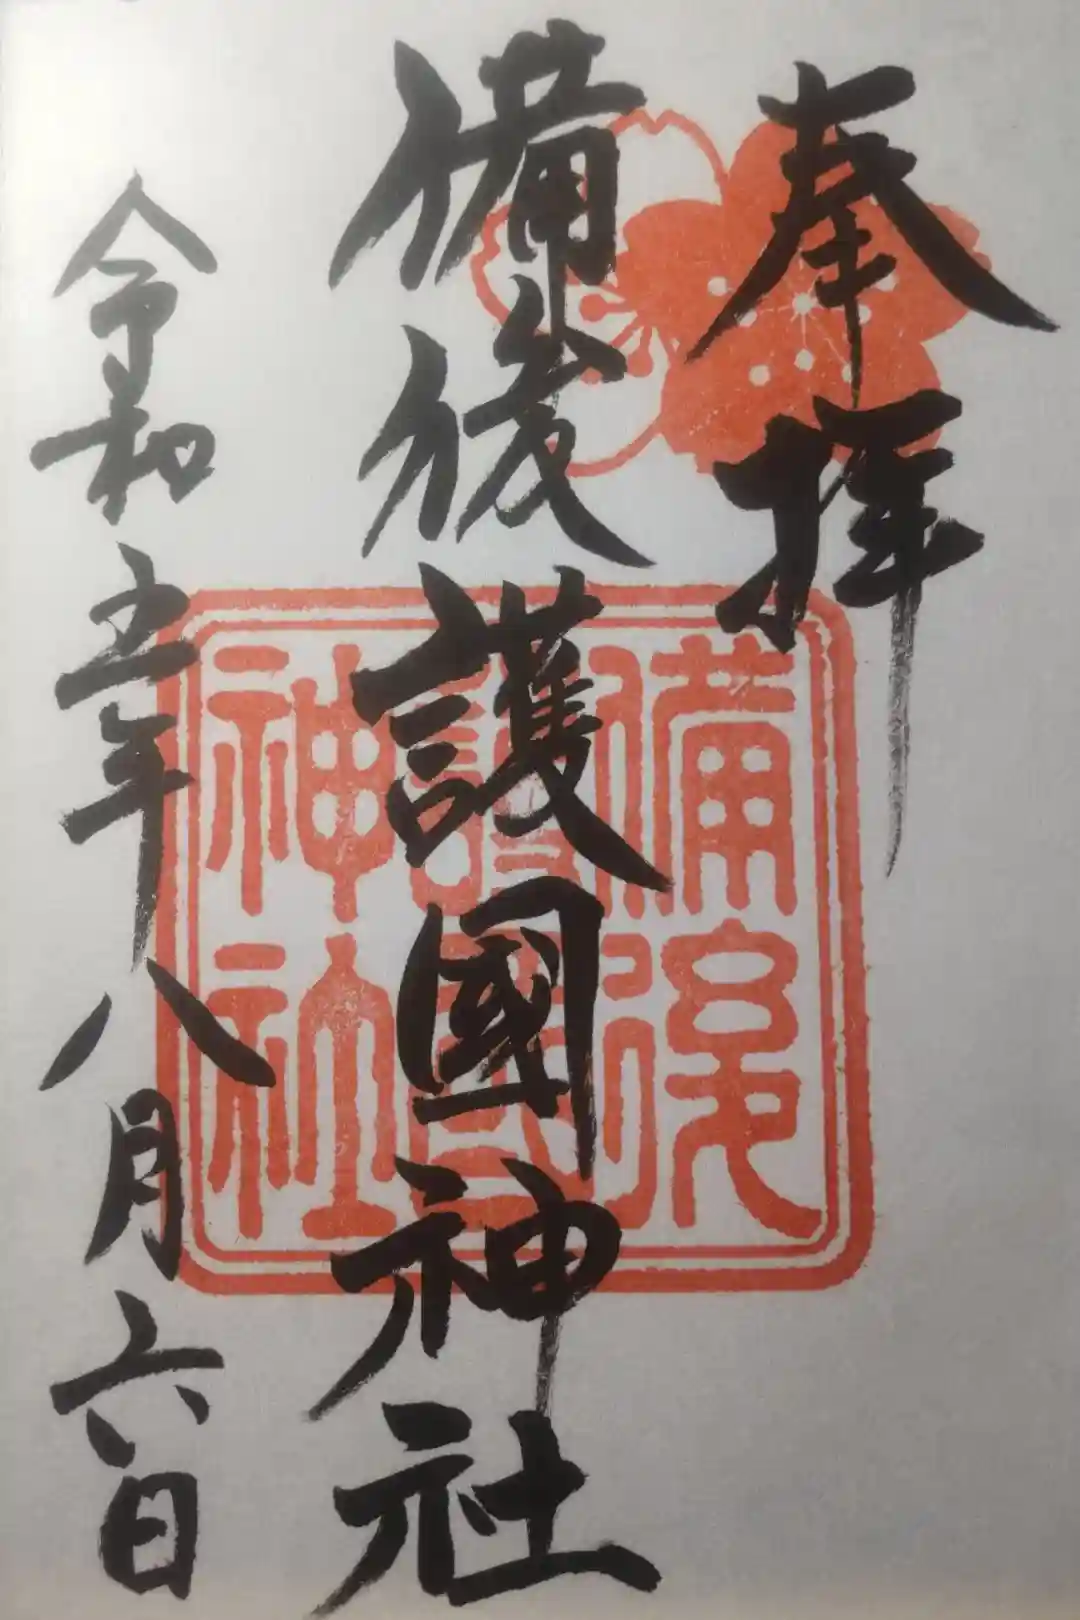 奉拝
備後護國神社
備後
護國
神社
令和五年八月六日